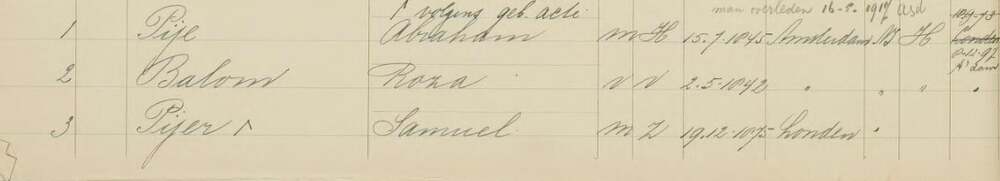 ↑ volgens geb. acte man overleden 16-8-1917 Asd
1 Pije Abraham m H 15.7.1845 Amsterdam NI H
2 Balom Roza v v 2.5.1842 " " " "
A'dam
3 Pijer ↑ Samuel m Z 19.12.1875 Londen "